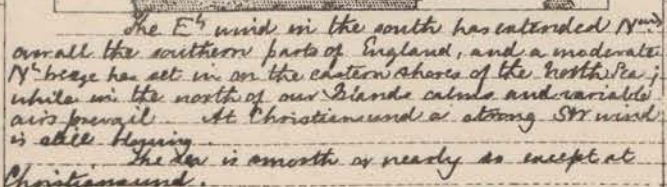 The E^ly wind in the south has extended N^ward
over all the southern parts of England, and a moderate
N^ly breeze has set in on the eastern shores of the North Sea;
while in the north of our Islands calms and variable
airs prevail. At Christiansund a strong SW wind
is still blowing.
The sea is smooth or nearly so except at
Christiansund.